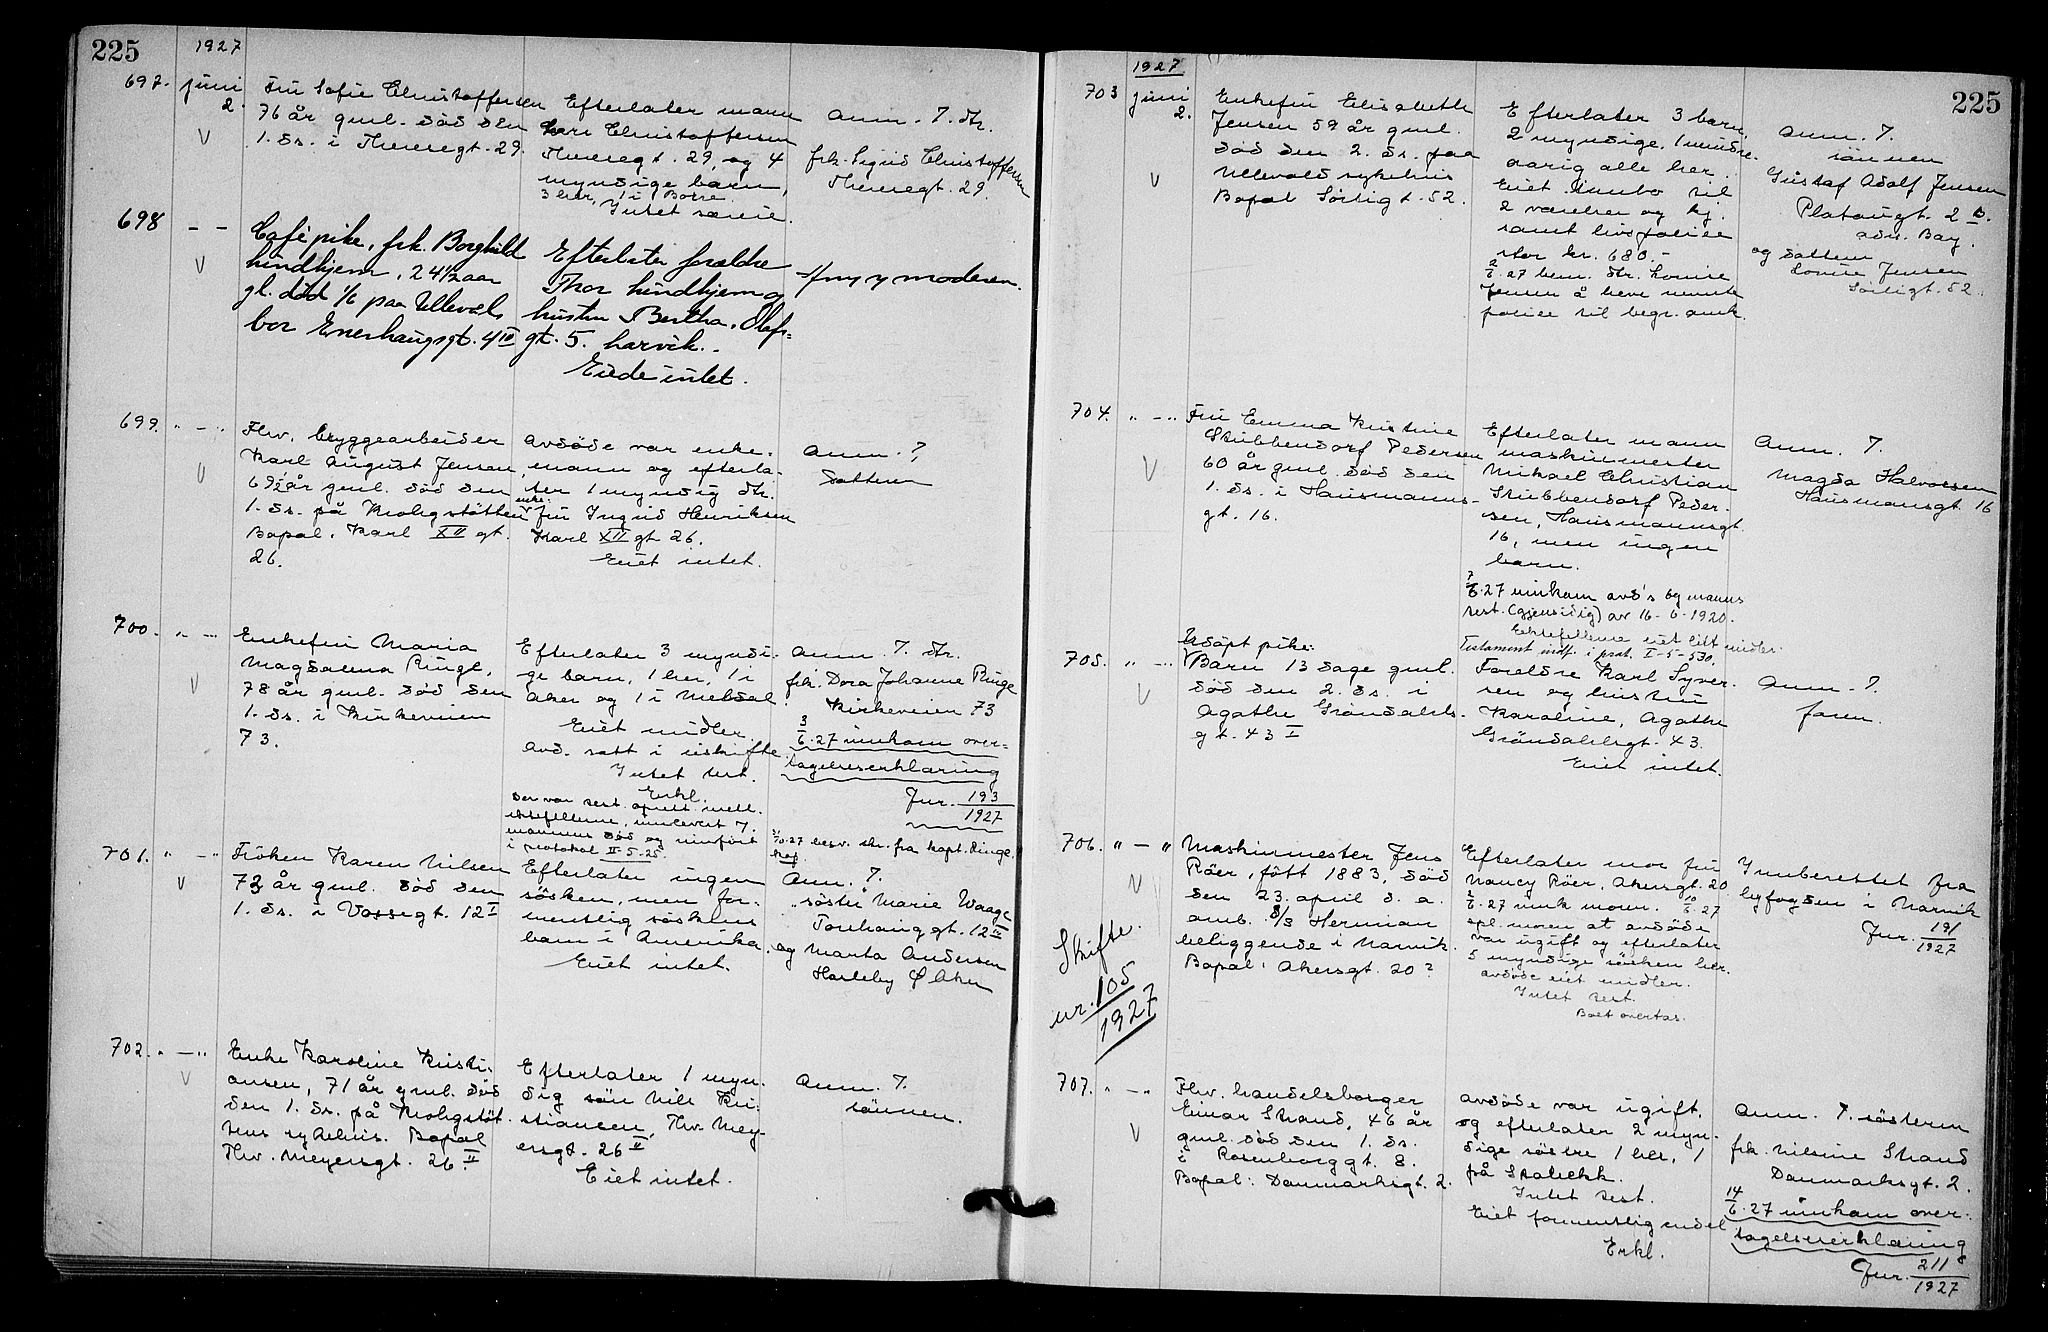 225
1927
697. juni 2.
Fru Sofie Christoffersen
76 år gml. död den
1. ds. i Theresegt. 29.
Efterlater mann
Lars Christoffersen
Theresegt. 29, og 4
myndige barn,
3 her, 1 i Borre.
Intet særeie.
Anm. ?. dtr.
frk. Sigrid Christoffersen
Theresegt. 29.
698 - -
Cafépike, frk. Borghild
Lindhjem, 24 1/2 aar
gl. död 1/6 paa Ullevål,
bor Enerhaugsgt. 4 IV
Efterlater forældre
Thor Lindhjem og
hustru Bertha, Olafs-
gt. 5. Larvik.
Eiede intet.
Anm. ? moderen.
699. " - "
Fhv. bryggearbeider
Karl August Jensen,
69 1/2 år gml. död den
1. ds. på Krohgstötten
Bopæl. Karl XII gt.
26.
Avdöde var enke-
mann og efterla-
ter 1 myndig dtr.
enke-
fru Ingrid Henriksen
Karl XII gt 26.
Eiet intet.
Anm. ?,
datteren
700. " - "
Enkefru Maria
Magdalena Ringe,
78 år gml. död den
1. ds. i Kirkeveien
73.
Efterlater 3 myndi-
ge barn, 1 her, 1 i
Aker og 1 i Meldal.
Eiet midler.
Avd. satt i uskifte.
Intet test.
Erkl.
Der var test. oprett. mell.
ektefellerne, innlevert ?.
mannens död og innfört
i protokol II-5-25.
Anm. ?. dtr.
frk. Dora Johanne Ringe
Kirkeveien 73
3/6.27 innkom over-
tagelseserklæring
Jnr. 193/1927
/10.27 besv. skr. fra kapt. Ringe.
701. " - "
Fröken Karen Nilsen
73 år gml. död den
1. ds. i Vossegt. 12 I
Efterlater ingen
sösken, men for-
mentlig söskens
barn i Amerika.
Eiet intet.
Anm. ?.
söster Marie Waage
gt. 12 IV
og Marta Andersen
Harleby Ø Aker
702. " - "
Enke Karoline Kristi-
ansen, 71 år gml. död
den 1. ds. på Krohgstöt-
tens sykehus. Bopæl
Thv. Meyersgt. 26 II
Efterlater 1 myn-
dig sön Nils Kri-
stiansen, Thv. Mey-
ersgt. 26 II
Eiet intet.
Anm. ?.
sönnen.
225
1927
703 juni 2.
Enkefru Elisabeth
Jensen 59 år gml.
död den 2. ds. paa
Ullevold sykehus
Bopæl Sörligt. 52.
Efterlater 3 barn,
2 myndige, 1 mindre-
aarig alle her.
Eiet innbo til
2 værelser og kj.
samt livspolice
stor kr. 680.-
2/6.27 bem. dtr. Louise
Jensen å heve nevnte
police til begr. omk.
Anm. ?.
sönnen
Gustaf Adolf Jensen
Platougt. 2 B.
adr. Bay.
og datteren
Louise Jensen
Sörligt. 52.
704. " - "
Fru Emma Kristine
Stubbendorf Pedersen
60 år gml. död den
1. ds. i Hausmanns-
gt. 16.
Efterlater mann
maskinmester
Mikael Christian
Stubbendorf Peder-
sen, Hausmannsgt.
16, men ingen
barn.
7/6.27 innkom avd's og manns
test. (gjensidig) av 16-6-1920.
Ektefellerne eiet litt midler.
Testament innf. i prot. I-5-530.
Anm. ?.
Magda Halvorsen
Hausmansgt. 16
705. " - "
Udöpt pike.
Barn 13 dage gml.
död den 2. ds. i
Agathe Gröndahls-
gt. 43 I
Foreldre Karl Syver-
sen og hustru
Karoline, Agathe
Gröndahlsgt. 43.
Eiet intet.
Anm. ?.
faren.
706. " - "
Skifte.
nr. 105/1927
Maskinmester Jens
Röer, fött 1883, död
den 23. april d. a.
omb. S/S Herman
beliggende i Narvik.
Bopæl: Akersgt. 20?
Efterlater mor fru
Nancy Röer, Akersgt. 20
2/6.27 innk moren. 10/6.27
opl. moren at avdöde
var ugift og efterlater
5 myndige sösken her.
Avdöde eiet midler.
Intet test.
Boet overtas.
Innberettet fra
byfogden i Narvik
Jnr. 191/1927
707. " - "
Fhv. handelsborger
Einar Strand, 46 år
gml. död den 1. ds.
i Rosenborggt. 8.
Bopæl: Danmarksgt. 2.
Avdöde var ugift,
og efterlater 2 myn-
dige söstre 1 her, 1
på Stabekk.
Intet test.
Eiet formentlig endel
Erkl.
Anm. ?. sösteren
frk. Nilsine Strand
Danmarksgt. 2.
14/6.27 innkom over-
tagelseserklæring
Jnr. 211/1927